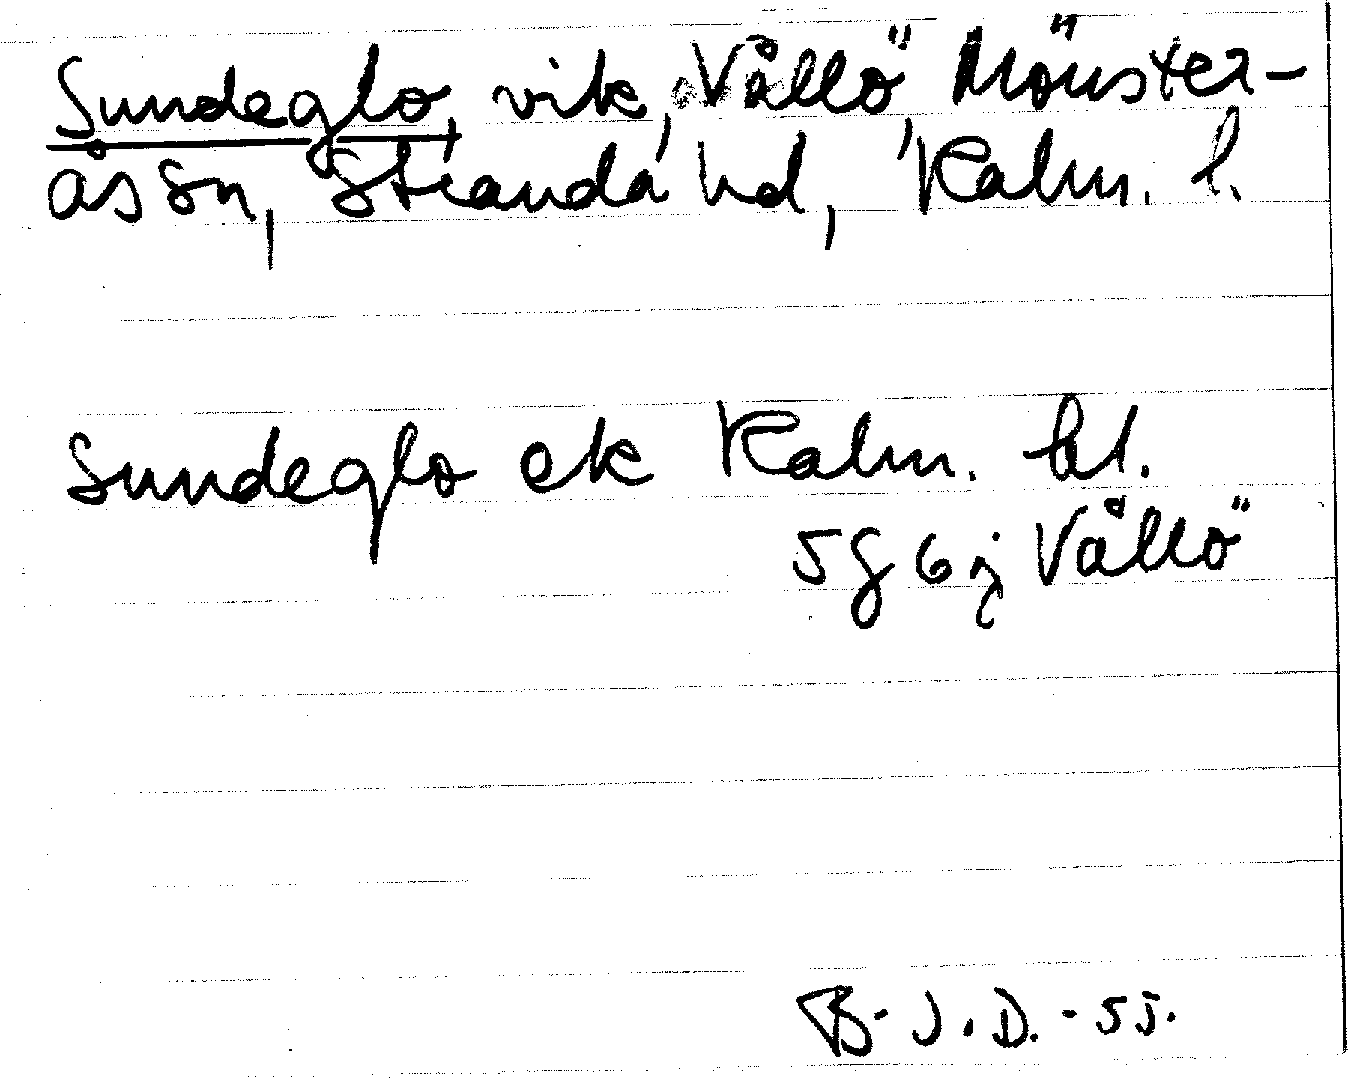 Sundeglo, vik, Vållö, Mönster-
ås sn, Stranda hd, Kalm. l.
Sundeglo ek Kalm. bl.
5g 6j Vållö
B-J.D.-55.